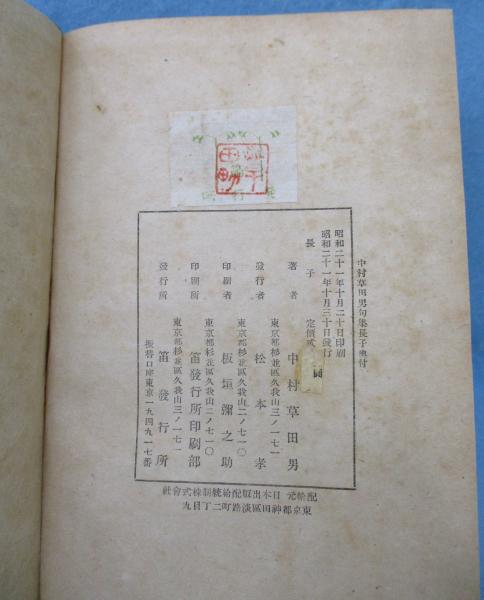 草田男
中村草田男句集長子奥付
昭和二十一年十月二十日印刷
昭和二十一年十月三十日發行
長子 定價貳
著者 中村草田男
東京都杉並區久我山三ノ一七一
發行者 松本孝
東京都杉並區久我山二ノ七一〇
印刷者 板垣彌之助
東京都杉並區久我山二ノ七一〇
印刷所 笛發行所印刷部
東京都杉並區久我山三ノ一七一
發行所 笛發行所
振替口座東京一九四九一七番
配給元 日本出版配給統制株式會社
東京都神田區淡路町二丁目九